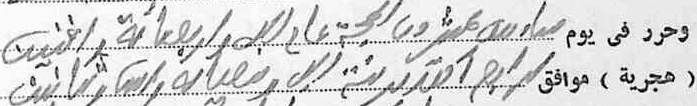 وحرر فى يوم سادس عشرون الحجة عام الف واربعمائة واثنين
( هجرية ) موافق الرابع اكتوبر سنة الف وتسعمائة واثنان وثمانين